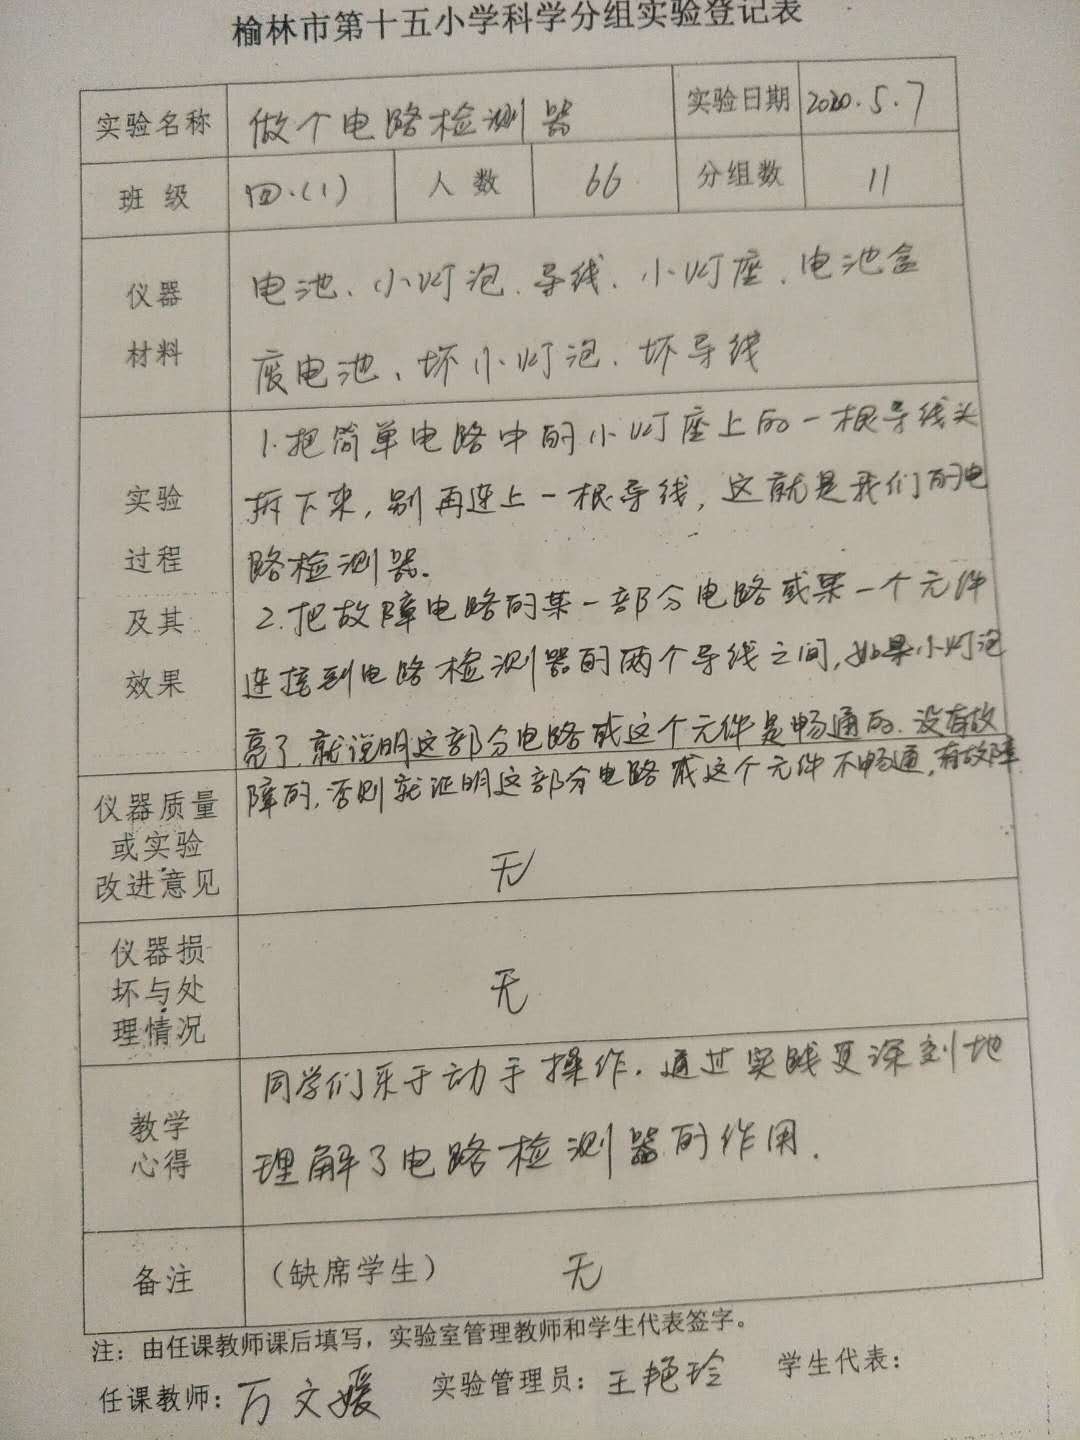 榆林市第十五小学科学分组实验登记表
实验名称 做个电路检测器 实验日期 2020.5.7
班级 四.(1) 人数 66 分组数 11
仪器 电池、小灯泡、导线、小灯座、电池盒
材料 废电池、坏小灯泡、坏导线
1.把简单电路中的小灯座上的一根导线头
实验 拆下来,别再连上一根导线,这就是我们的电
过程 路检测器.
及其 2.把故障电路的某一部分电路或某一个元件
效果 连接到电路检测器的两个导线之间,如果小灯泡
亮了,就说明这部分电路或这个元件是畅通的.没有故
仪器质量 障的,否则就证明这部分电路或这个元件不畅通,有故障
或实验
改进意见 无
仪器损
坏与处 无
理情况
同学们乐于动手操作.通过实践更深刻地
教学
心得 理解了电路检测器的作用.
备注 (缺席学生) 无
注:由任课教师课后填写,实验室管理教师和学生代表签字。
任课教师:万文媛 实验管理员:王艳玲 学生代表: